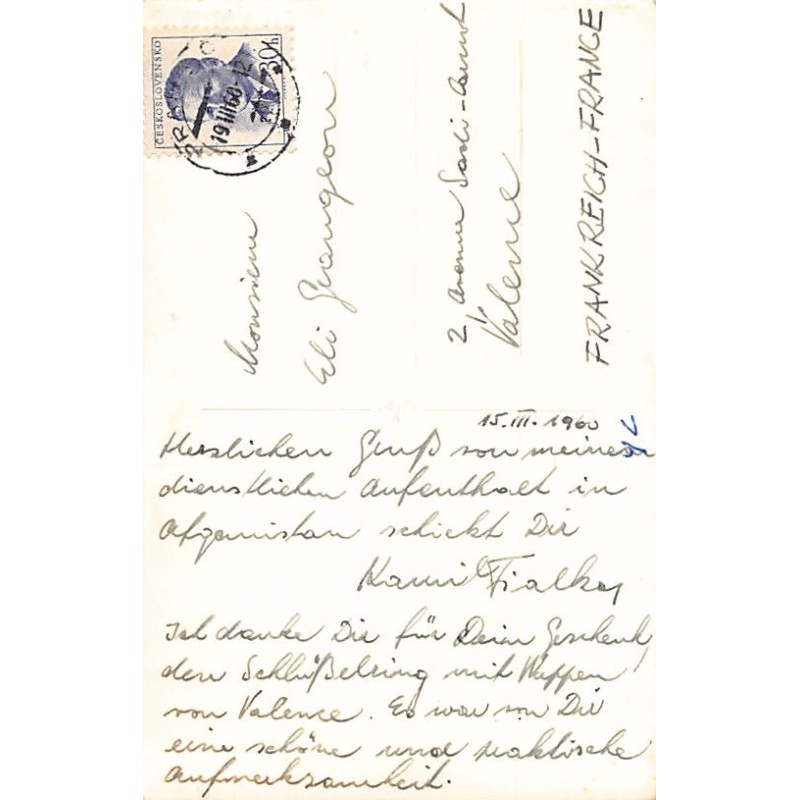 ČESKOSLOVENSKO
30h
19.III.60-12
Monsieur
Eli Grangeon
2, Avenue Sadi-Carnot
Valence
FRANKREICH-FRANCE
15.III.1960
Herzlichen Gruß von meinem
dienstlichen Aufenthalt in
Afganistan schickt Dir
Kamil Fialka
Ich danke Dir für Dein Geschenk,
den Schlüßelring mit Wappen
von Valence. Es war von Dir
eine schöne und praktische
Aufmerksamkeit.